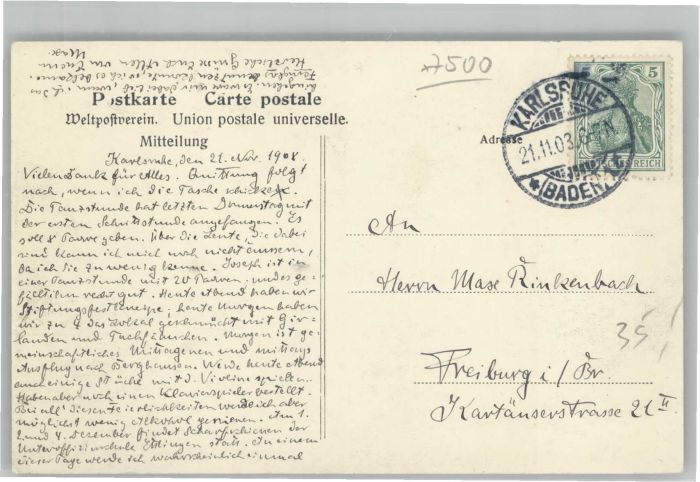 7500
Postkarte Carte postale
Weltpostverein. Union postale universelle.
Mitteilung
Adresse
5
DEUTSCHES REICH
KARLSRUHE
21.11.03
(BADEN)
Karlsruhe, den 21. Nov. 1908.
Vielen Dank für Alles. Quittung folgt
nach, wenn ich die Tasche schicke.
Die Tanzstunde hat letzten Donnerstag mit
der ersten Schrittstunde angefangen. Es
soll 8 Paare geben. Über die Leute, die dabei
sind kann ich mich noch nicht äussern,
da ich sie zu wenig kenne. Joseph ist in
einer Tanzstunde mit 20 Paaren und es ge-
fällt ihm recht gut. Heute abend haben wir
Stiftungsfestkneipe; heute Morgen haben
wir zu 4 das Lokal geschmückt mit Gir-
landen und Fächern. Morgen ist ge-
meinschaftliches Mittagessen und mittags
Ausflug nach Berghausen. Werde heute Abend
auch einige Stücke mit d. Violine spielen.
Haben aber noch einen Klavierspieler bestellt.
Bei all' diesen Feierlichkeiten werde ich aber
möglichst wenig Alkohol geniessen. Am 1.
2. und 4. Dezember findet Scharfschiessen der
Unteroffizierschule Ettlingen statt. An einem
dieser Tage werde ich wahrscheinlich einmal
Herzliche Grüsse Euch Allen von Euerm
Max.
An
Herrn Max Rinkenbach
Freiburg i/Br.
Kartäuserstrasse 21 II
35